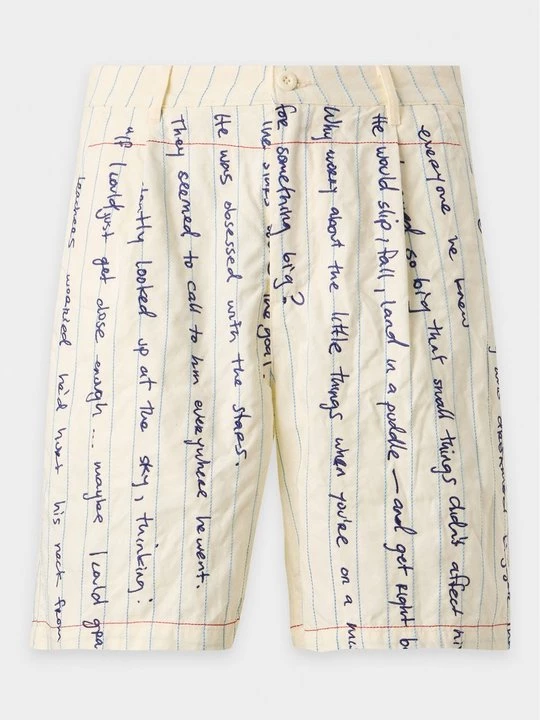 everyone he knew
so big that small things didn't affect hi
He would slip, fall, land in a puddle — and get right b
Why worry about the little things when you're on a mi
for something big?
the goal.
He was obsessed with the stars.
They seemed to call to him everywhere he went.
antly looked up at the sky, thinking:
"If I could just get close enough ... maybe I could gra
teachers worried he'd hurt his neck from